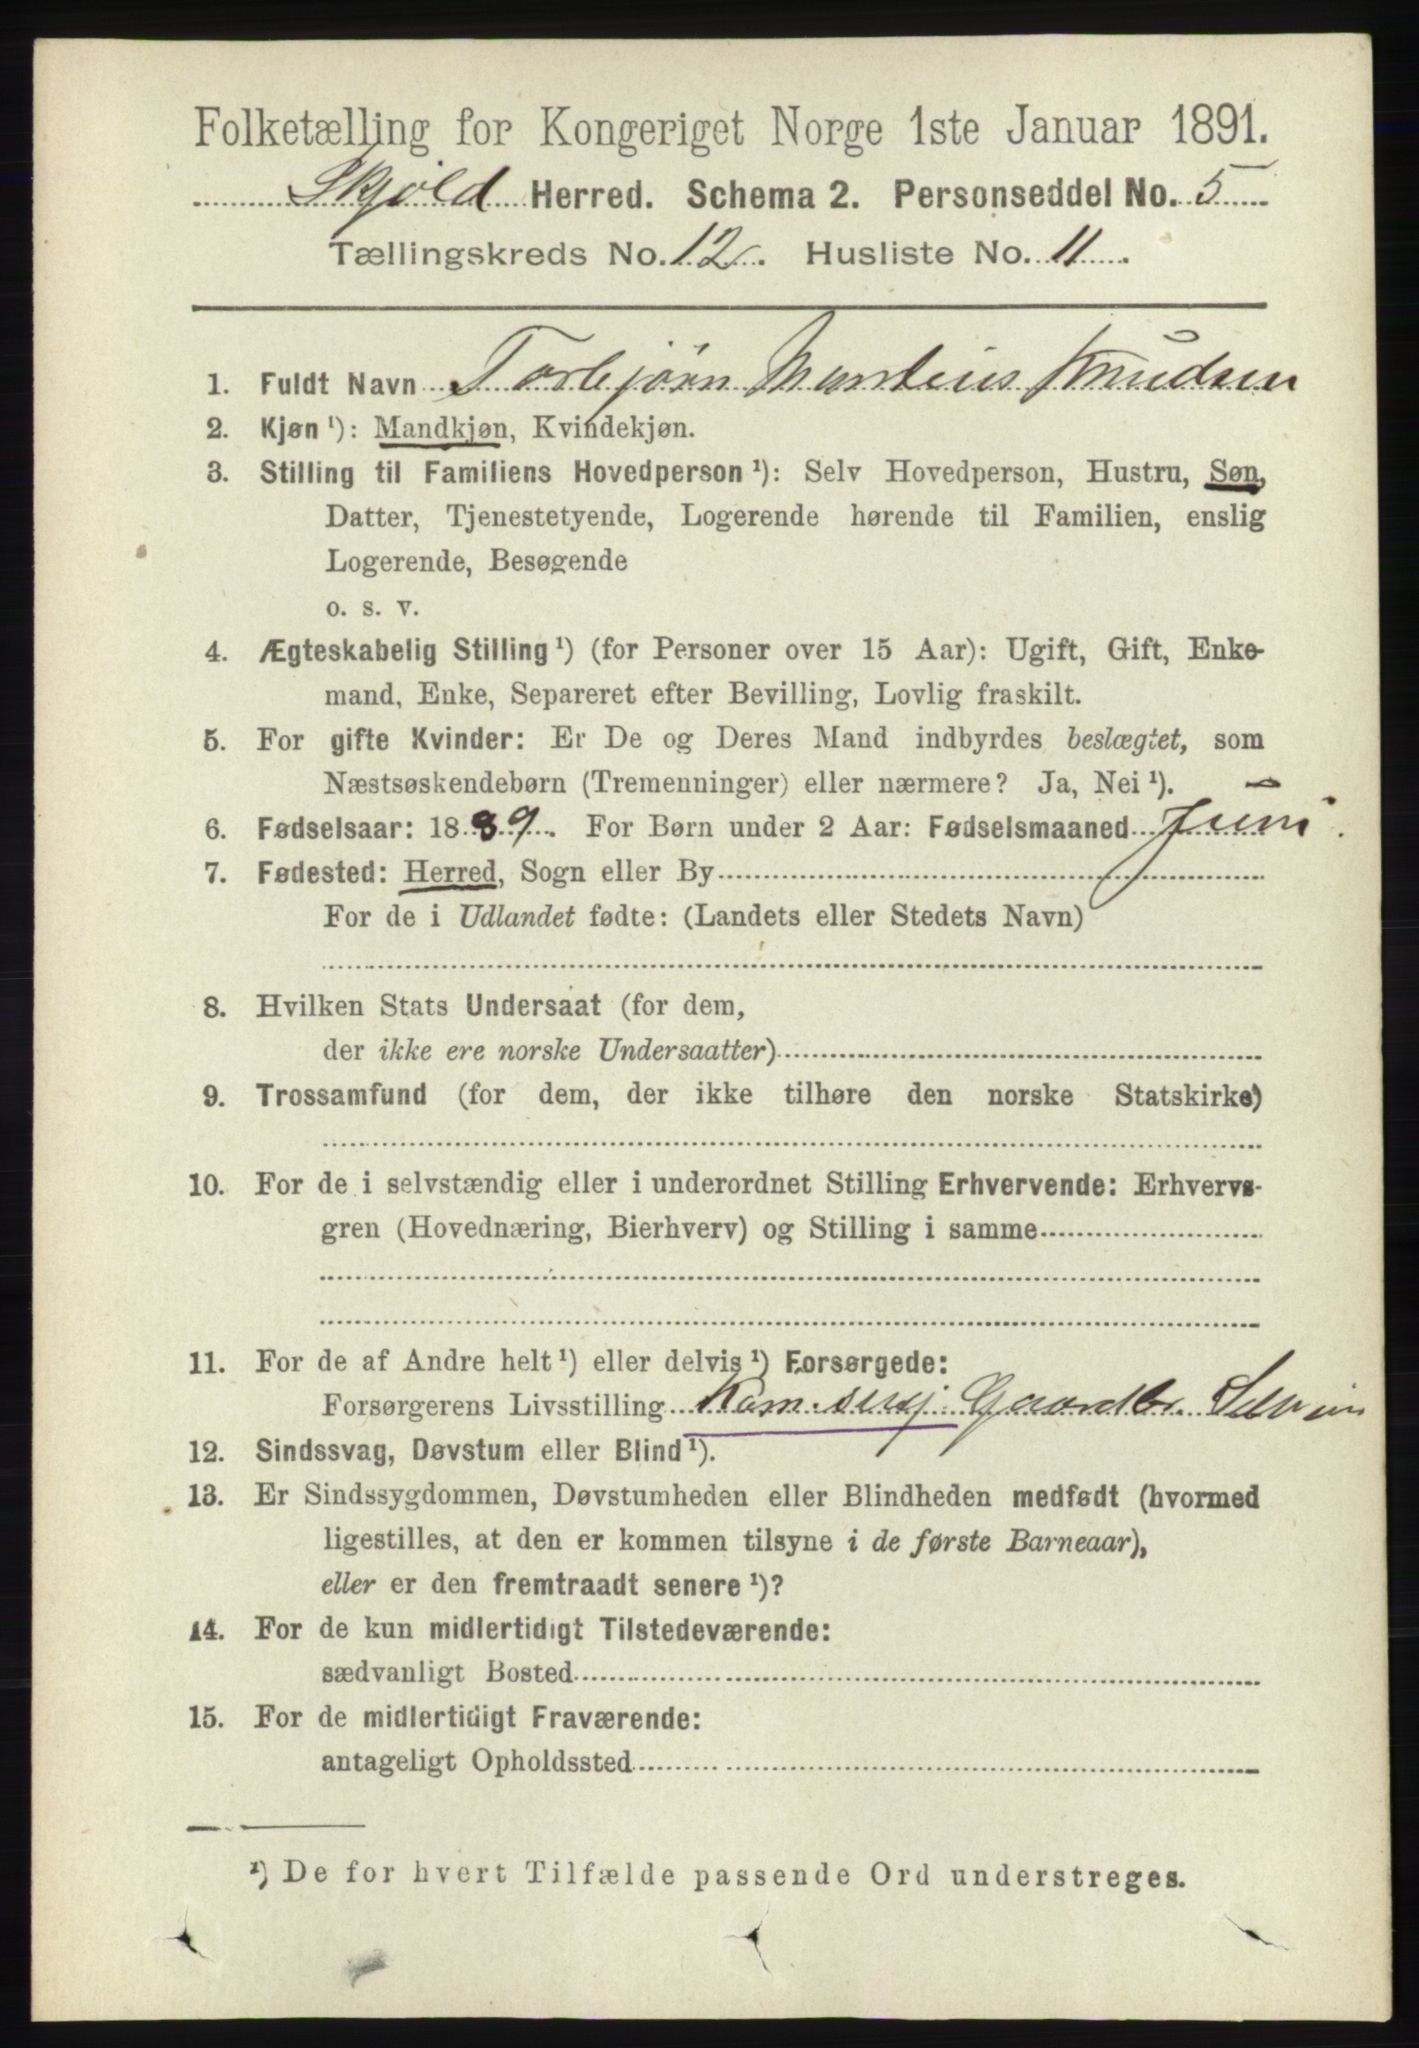 Folketælling for Kongeriget Norge 1ste Januar 1891.
Skjold Herred. Schema 2. Personseddel No. 5
Tællingskreds No. 12. Husliste No. 11
1. Fuldt Navn Torbjørn Martins Knudsen
2. Kjøn ¹): Mandkjøn, Kvindekjøn.
3. Stilling til Familiens Hovedperson ¹): Selv Hovedperson, Hustru, Søn,
Datter, Tjenestetyende, Logerende hørende til Familien, enslig
Logerende, Besøgende
o. s. v.
4. Ægteskabelig Stilling ¹) (for Personer over 15 Aar): Ugift, Gift, Enke-
mand, Enke, Separeret efter Bevilling, Lovlig fraskilt.
5. For gifte Kvinder: Er De og Deres Mand indbyrdes beslægtet, som
Næstsøskendebørn (Tremenninger) eller nærmere? Ja, Nei ¹).
6. Fødselsaar: 1889. For Børn under 2 Aar: Fødselsmaaned Juni.
7. Fødested: Herred, Sogn eller By
For de i Udlandet fødte: (Landets eller Stedets Navn)
8. Hvilken Stats Undersaat (for dem,
der ikke ere norske Undersaatter)
9. Trossamfund (for dem, der ikke tilhøre den norske Statskirke)
10. For de i selvstændig eller i underordnet Stilling Erhvervende: Erhvervs-
gren (Hovednæring, Bierhverv) og Stilling i samme
11. For de af Andre helt ¹) eller delvis ¹) Forsørgede:
Forsørgerens Livsstilling Kom. sersj Gaardbr. Selveier
12. Sindssvag, Døvstum eller Blind ¹).
13. Er Sindssygdommen, Døvstumheden eller Blindheden medfødt (hvormed
ligestilles, at den er kommen tilsyne i de første Barneaar),
eller er den fremtraadt senere ¹)?
14. For de kun midlertidigt Tilstedeværende:
sædvanligt Bosted
15. For de midlertidigt Fraværende:
antageligt Opholdssted
¹) De for hvert Tilfælde passende Ord understreges.